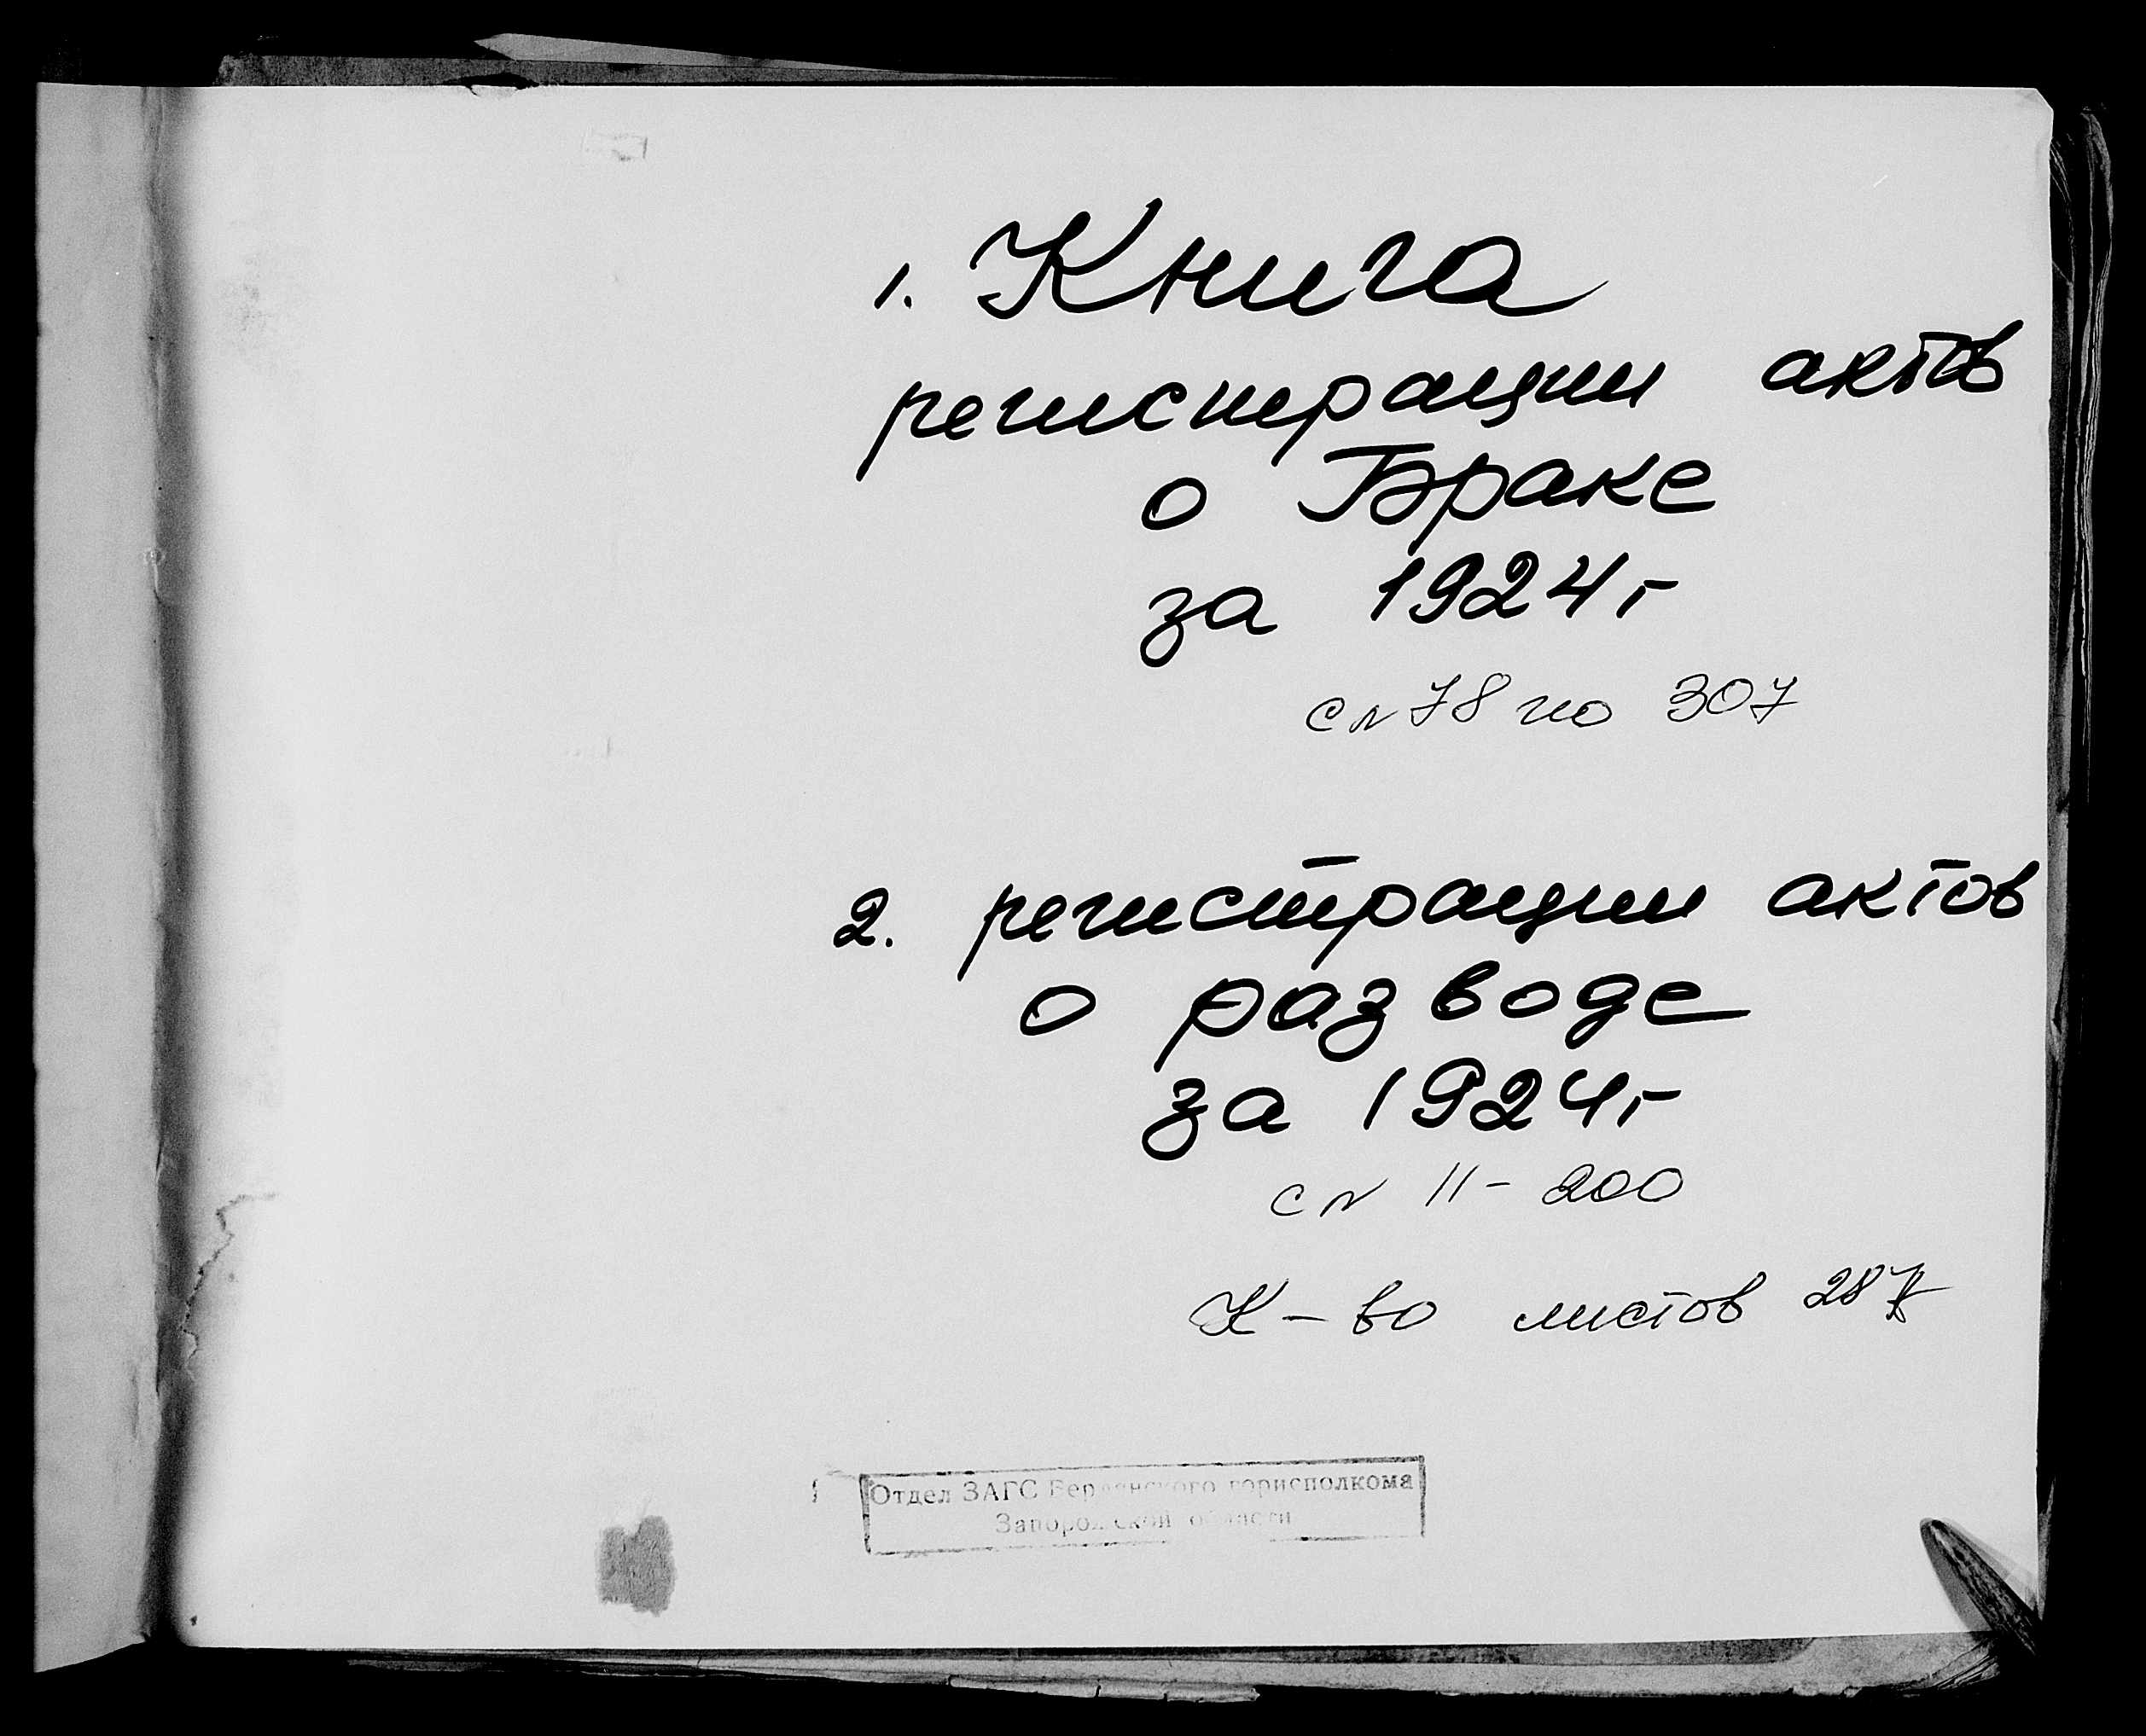 1. Книга
регистрации актов
о Браке
за 1924г
с № 78 по 307
2. регистрации актов
о разводе
за 1924г
с № 11 - 200
К-во листов
Отдел ЗАГС Бердянского горисполкома
Запорожской области